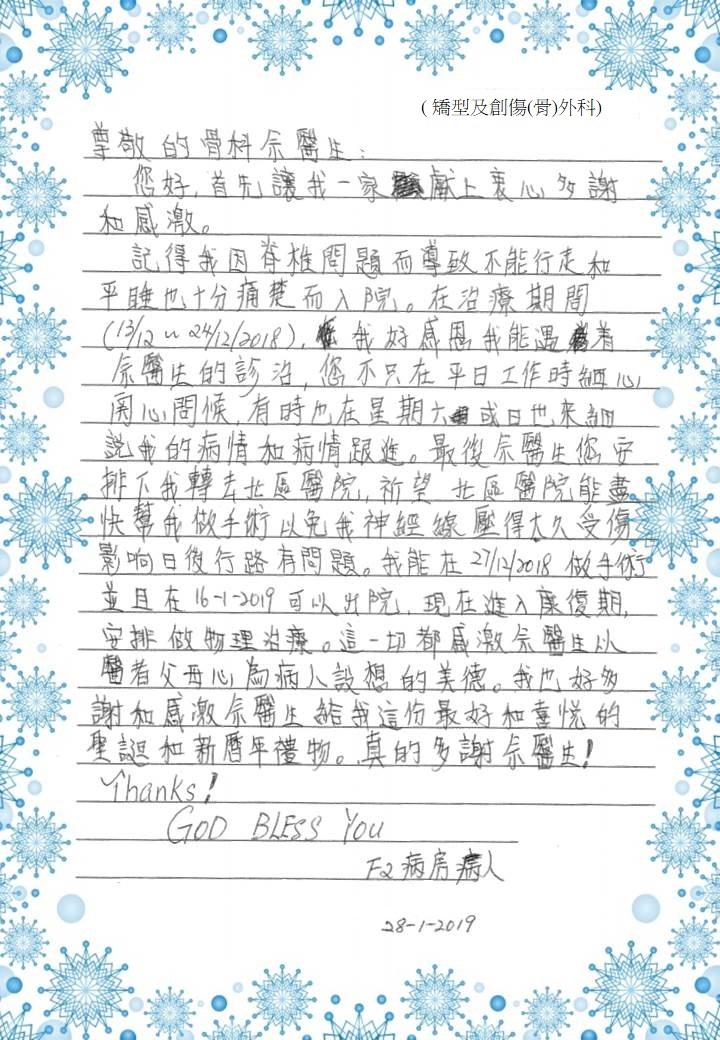 ( 矯型及創傷(骨)外科)
尊敬的骨科佘醫生：
您好，首先讓我一家獻上衷心多謝
和感激。
記得我因脊椎問題而導致不能行走和
平睡也十分痛楚而入院。在治療期間
(13/12 ~ 24/12/2018)，我好感恩我能遇着
佘醫生的診治，您不只在平日工作時細心
開心問候，有時也在星期六或日也來細
說我的病情和病情跟進。最後佘醫生您安
排下我轉去北區醫院，祈望 北區醫院能盡
快幫我做手術以免我神經線壓得太久受傷
影响日後行路有問題。我能在27/12/2018 做手術
並且在16-1-2019可以出院，現在進入康復期，
安排做物理治療。這一切都感激佘醫生以
醫者父母心為病人設想的美德。我也好多
謝和感激佘醫生給我這份最好和喜悅的
聖誕和新曆年禮物。真的多謝佘醫生!
Thanks!
GOD BLESS YOU
F2病房病人
28-1-2019